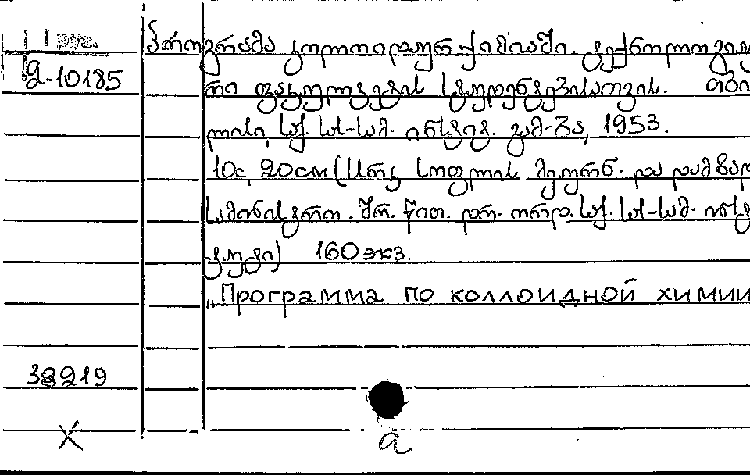 დ-10185
პროგრამა კოლოიდურ ქიმიაში. ტექნოლოგიუ
რი ფაკულტეტის სტუდენტებისათვის. თბი
ლისი, საქ. სას-სამ. ინსტიტ. გამ-ბა, 1953.
10с, 20см (სსრკ სოფლის მეურნ. და დამზად
სამინისტრო. შრ. წით. დრ. ორდ. საქ. სას-სამ. ინს
ტიტუტი) 160 экз.
„Программа по коллоидной химии
38219
X
a